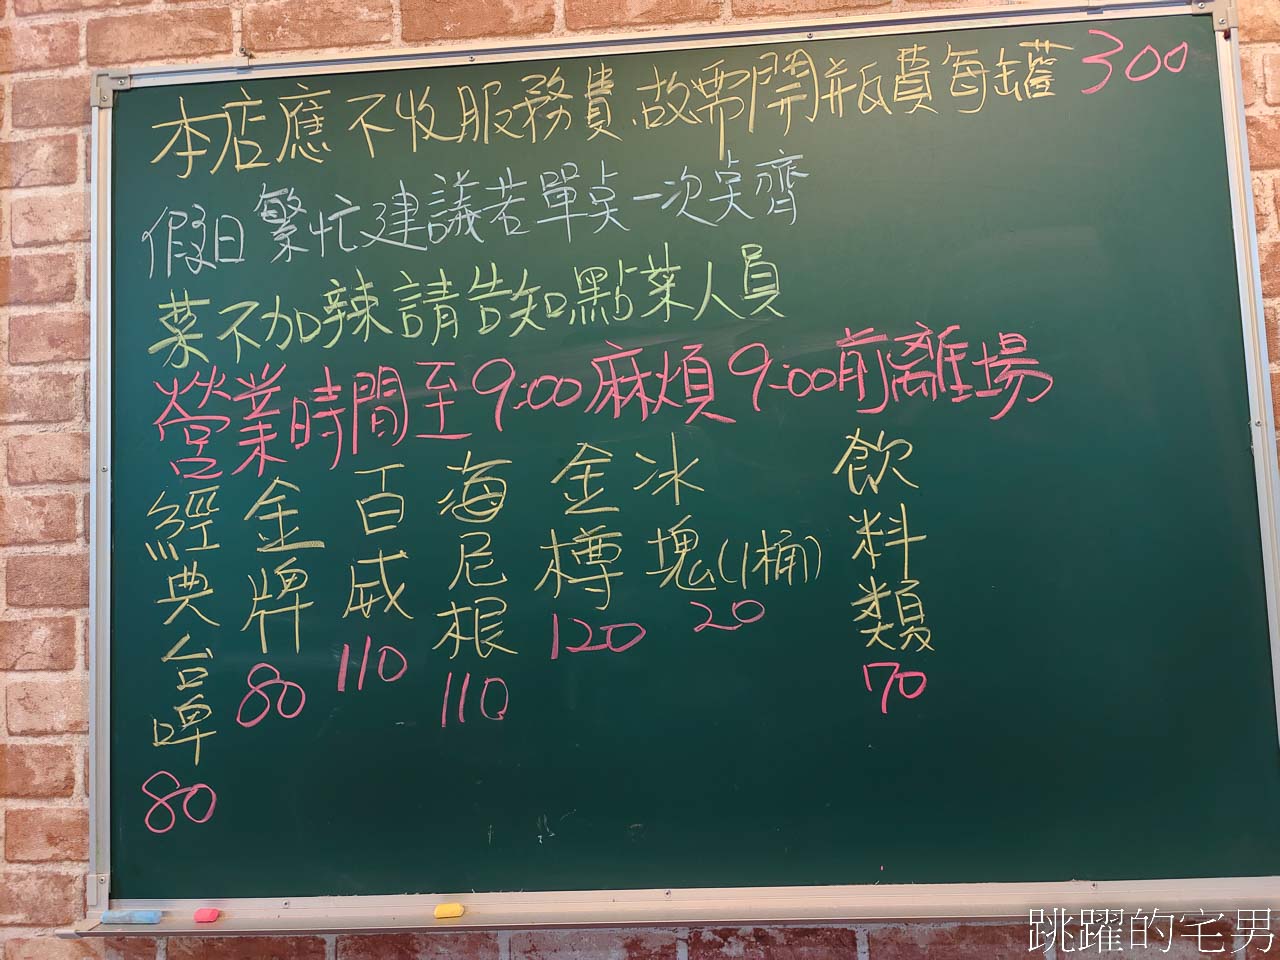 本店應不收服務費.故需開瓶費每罐300
假日繁忙建議若單桌一次桌齊
菜不加辣請告知點菜人員
營業時間至9:00麻煩9:00前離場
經典台啤 80
金牌 80
百威 110
海尼根 110
金樽 120
冰塊(1桶) 20
飲料類 70
跳躍的宅男